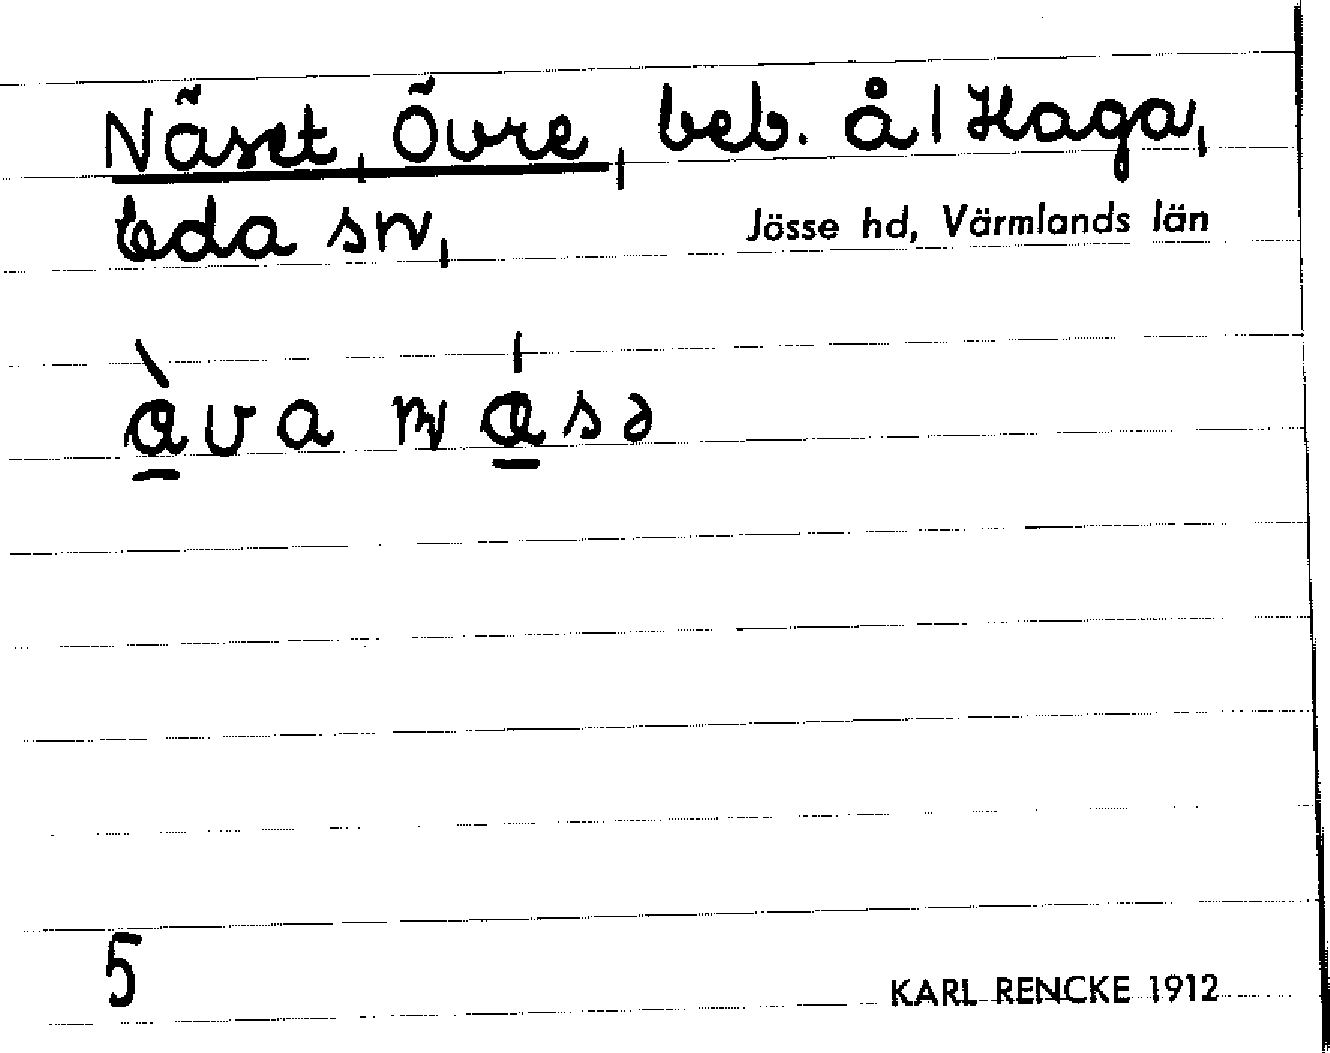 Näset, Övre, beb. å 1 Haga,
Eda sn, Jösse hd, Värmlands län
a̱̍va na̱sə
5
KARL RENCKE 1912